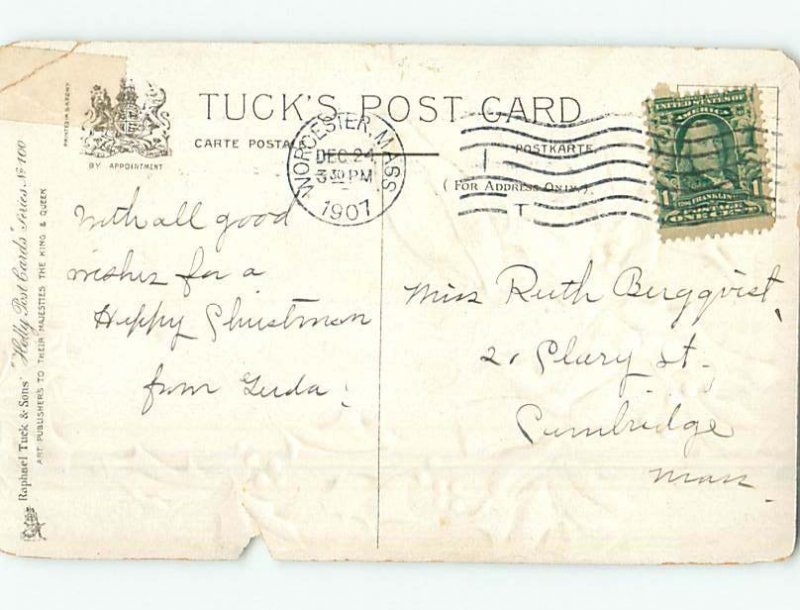 TUCK'S POST CARD
CARTE POSTALE
POSTKARTE
(FOR ADDRESS ONLY.)
BY APPOINTMENT
PRINTED IN SAXONY
WORCESTER, MASS
DEC 24
3 30 PM
1907
T
UNITED STATES OF
AMERICA
1 FRANKLIN 1
ONE CENT
Raphael Tuck & Sons' "Holly Post Cards" Series No 100
ART PUBLISHERS TO THEIR MAJESTIES THE KING & QUEEN
With all good
wishes for a
Happy Christmas
from
Miss Ruth Bergqvist,
St.
Cambridge
Mass.